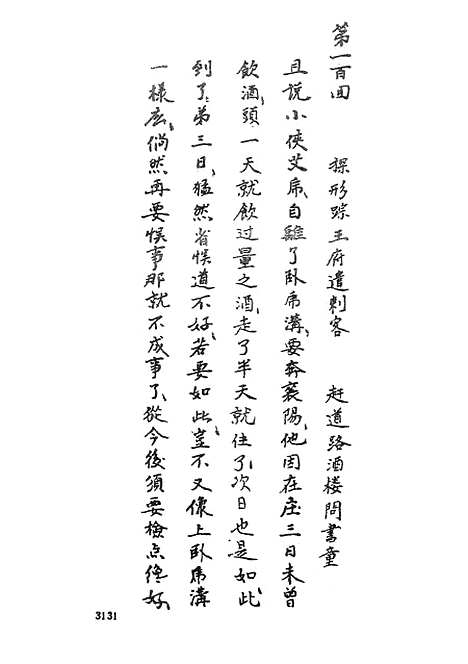 第一百回 探形踪王府遣刺客 赶道路酒楼問書童
且说小侠艾虎、自離了卧虎溝、要奔襄陽、他因在庄三日未曾
飲酒、頭一天就飲过量之酒、走了半天就住了、次日也是如此、
到了第三日、猛然省悮道不好、若要如此、豈不又像上卧虎溝
一樣庅、倘然再要悮事那就不成事了、從今後須要檢点终好、
3131